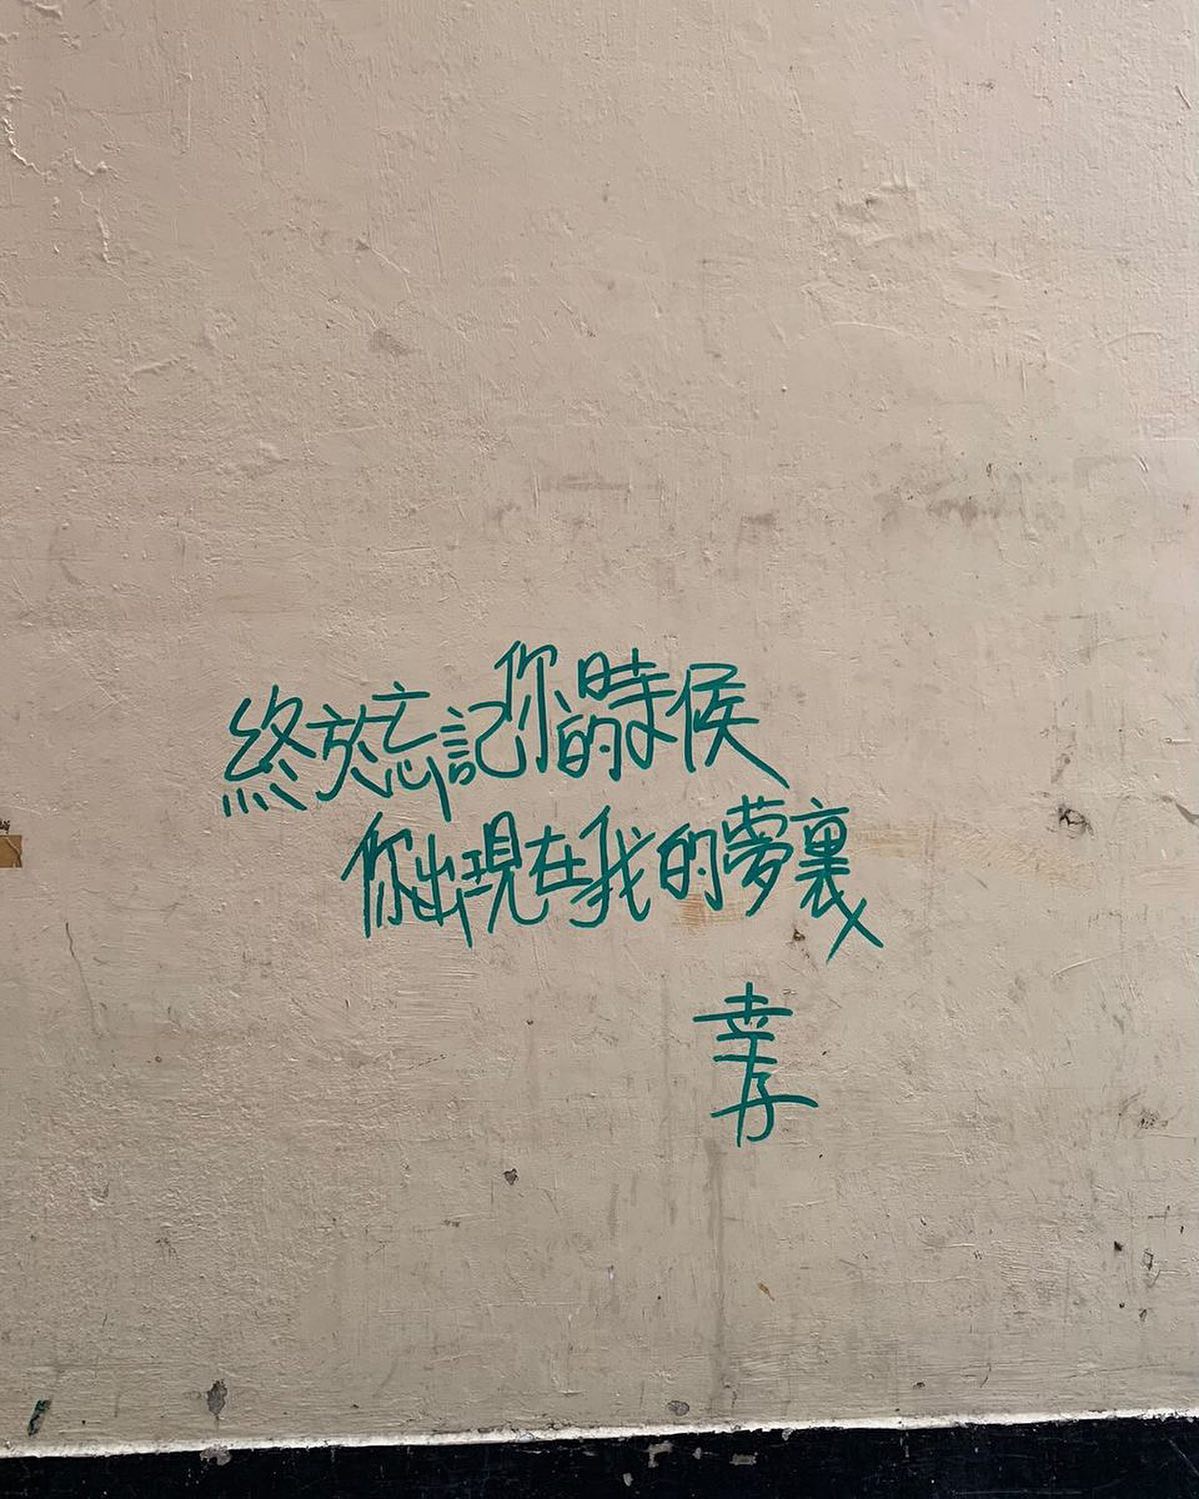 終於忘記你的時候
你出現在我的夢裏
幸子